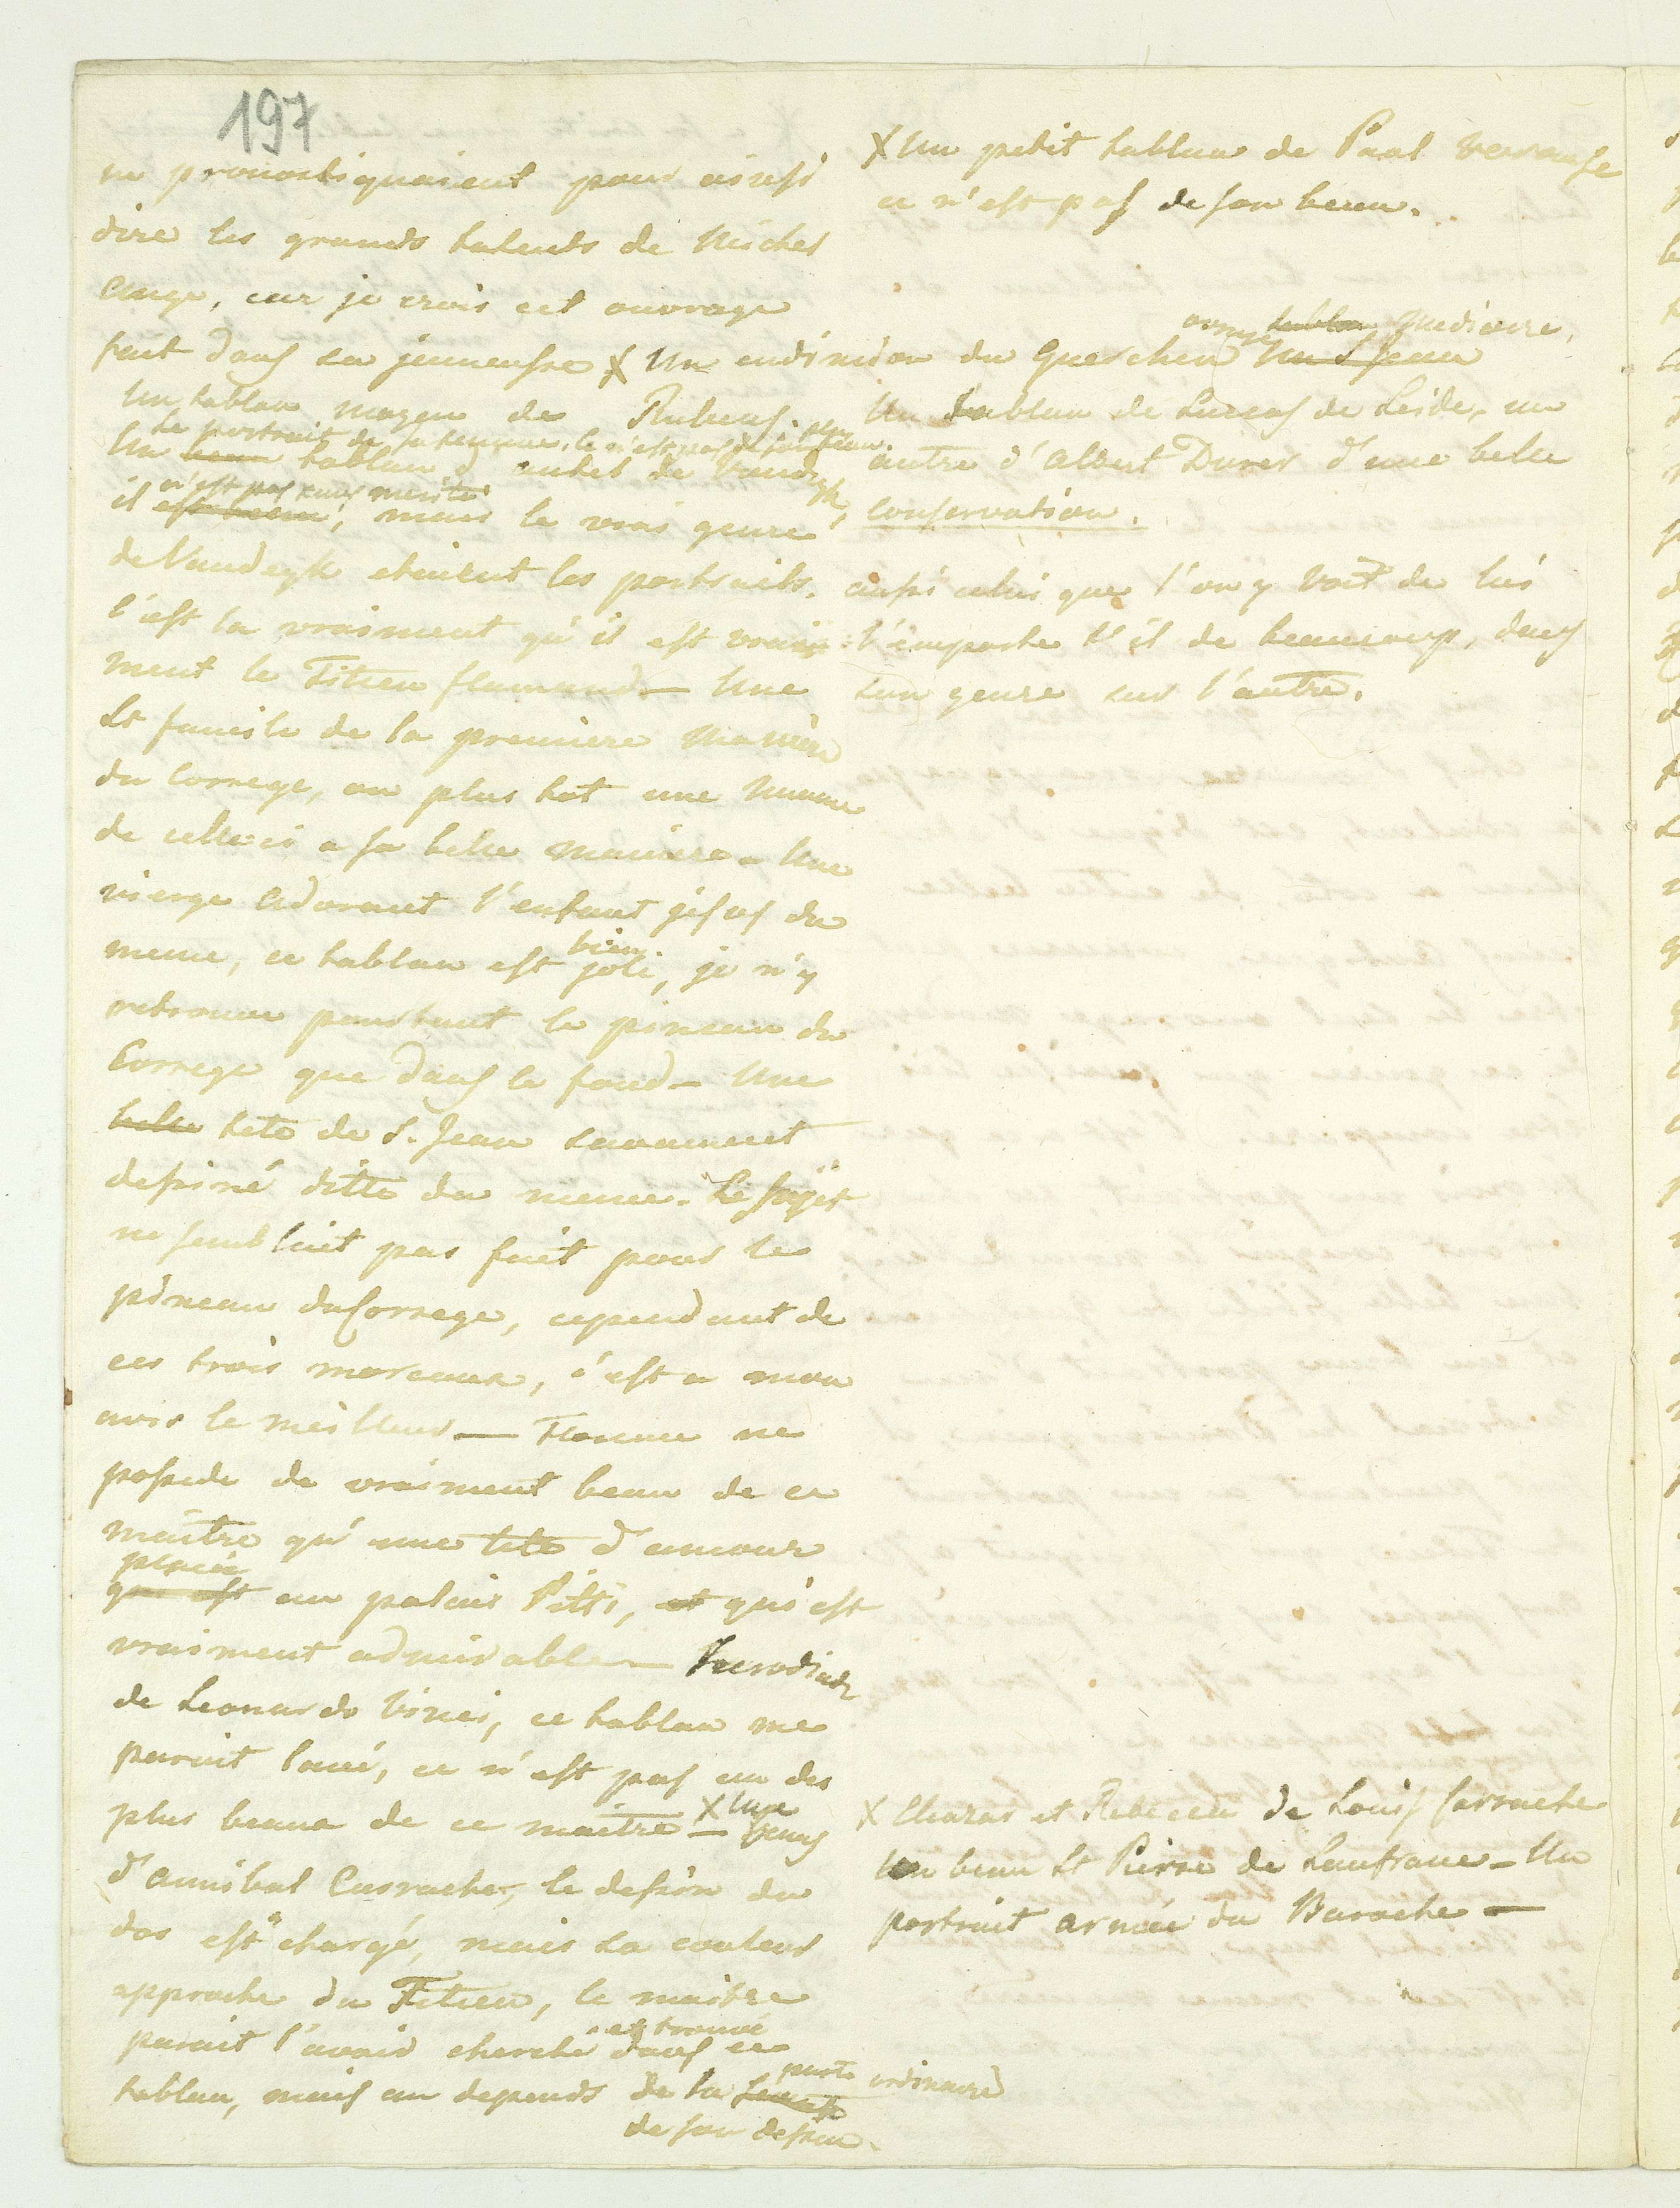 197
ne pronostiquaient pour ainsi
dire les grands talents de Michel
ange, car je crois cet ouvrage
fait dans sa jeunesse X Un endimion du Guerchin
Un tableau moyen de Rubens.
Le portrait de sa femme. ce n'est pas de son beau.
Un beau tableau d'autel de Vandeyk,
n'est pas sans merite
il est beau, mais le vrai genre
de Vandeyk etaient les portraits.
c'est la vraiment qu'il est vrai-
ment le Titien flamand — Une
St famile de la premiere maniere
du Correge, ou plus tot une nuance
de celle ci a sa belle maniere - Une
vierge adorant l'enfant jesus du
bien
meme, ce tableau est joli, je n'y
retrouve pourtant le pinceau du
Correge que dans le fond — Une
belle tete de S. Jean savamment
dessiné ditto du meme. Le sujet
ne semblait pas fait pour le
pinceau du Correge, cependant de
ces trois morceaux, c'est a mon
avis le meilleur — Florence ne
possede de vraiment beau de ce
maitre qu'une tete d'amour
placée
qui est au palais Pitti, et qui est
vraiment admirable — Herodiade
de Leonardo Vinci, ce tableau me
parait loué, ce n'est pas un des
plus beaux de ce maitre — X Une Venus
d'Annibal Carrache, le dessin du
dos est chargé, mais sa couleur
approche du Titien, le maitre
et trouvé
parait l'avoir cherché dans ce
tableau, mais au depends de la pureté ordinaire
de son dessin.
X Un petit tableau de Paul Veronese
ce n'est pas de son beau.
ouvrage tableau mediocre,
Un S Jean
Un tableau de Luccas de Leide, un
autre d'Albert Durer d'une belle
conservation.
aussi celui que l'on y voit de lui
l'emporte t'il de beaucoup, dans
son genre sur l'autre.
X Eliazar et Rebecca de Louis Carrache
Un beau St Pierre de Lanfranc — Un
portrait armée du Barroche —